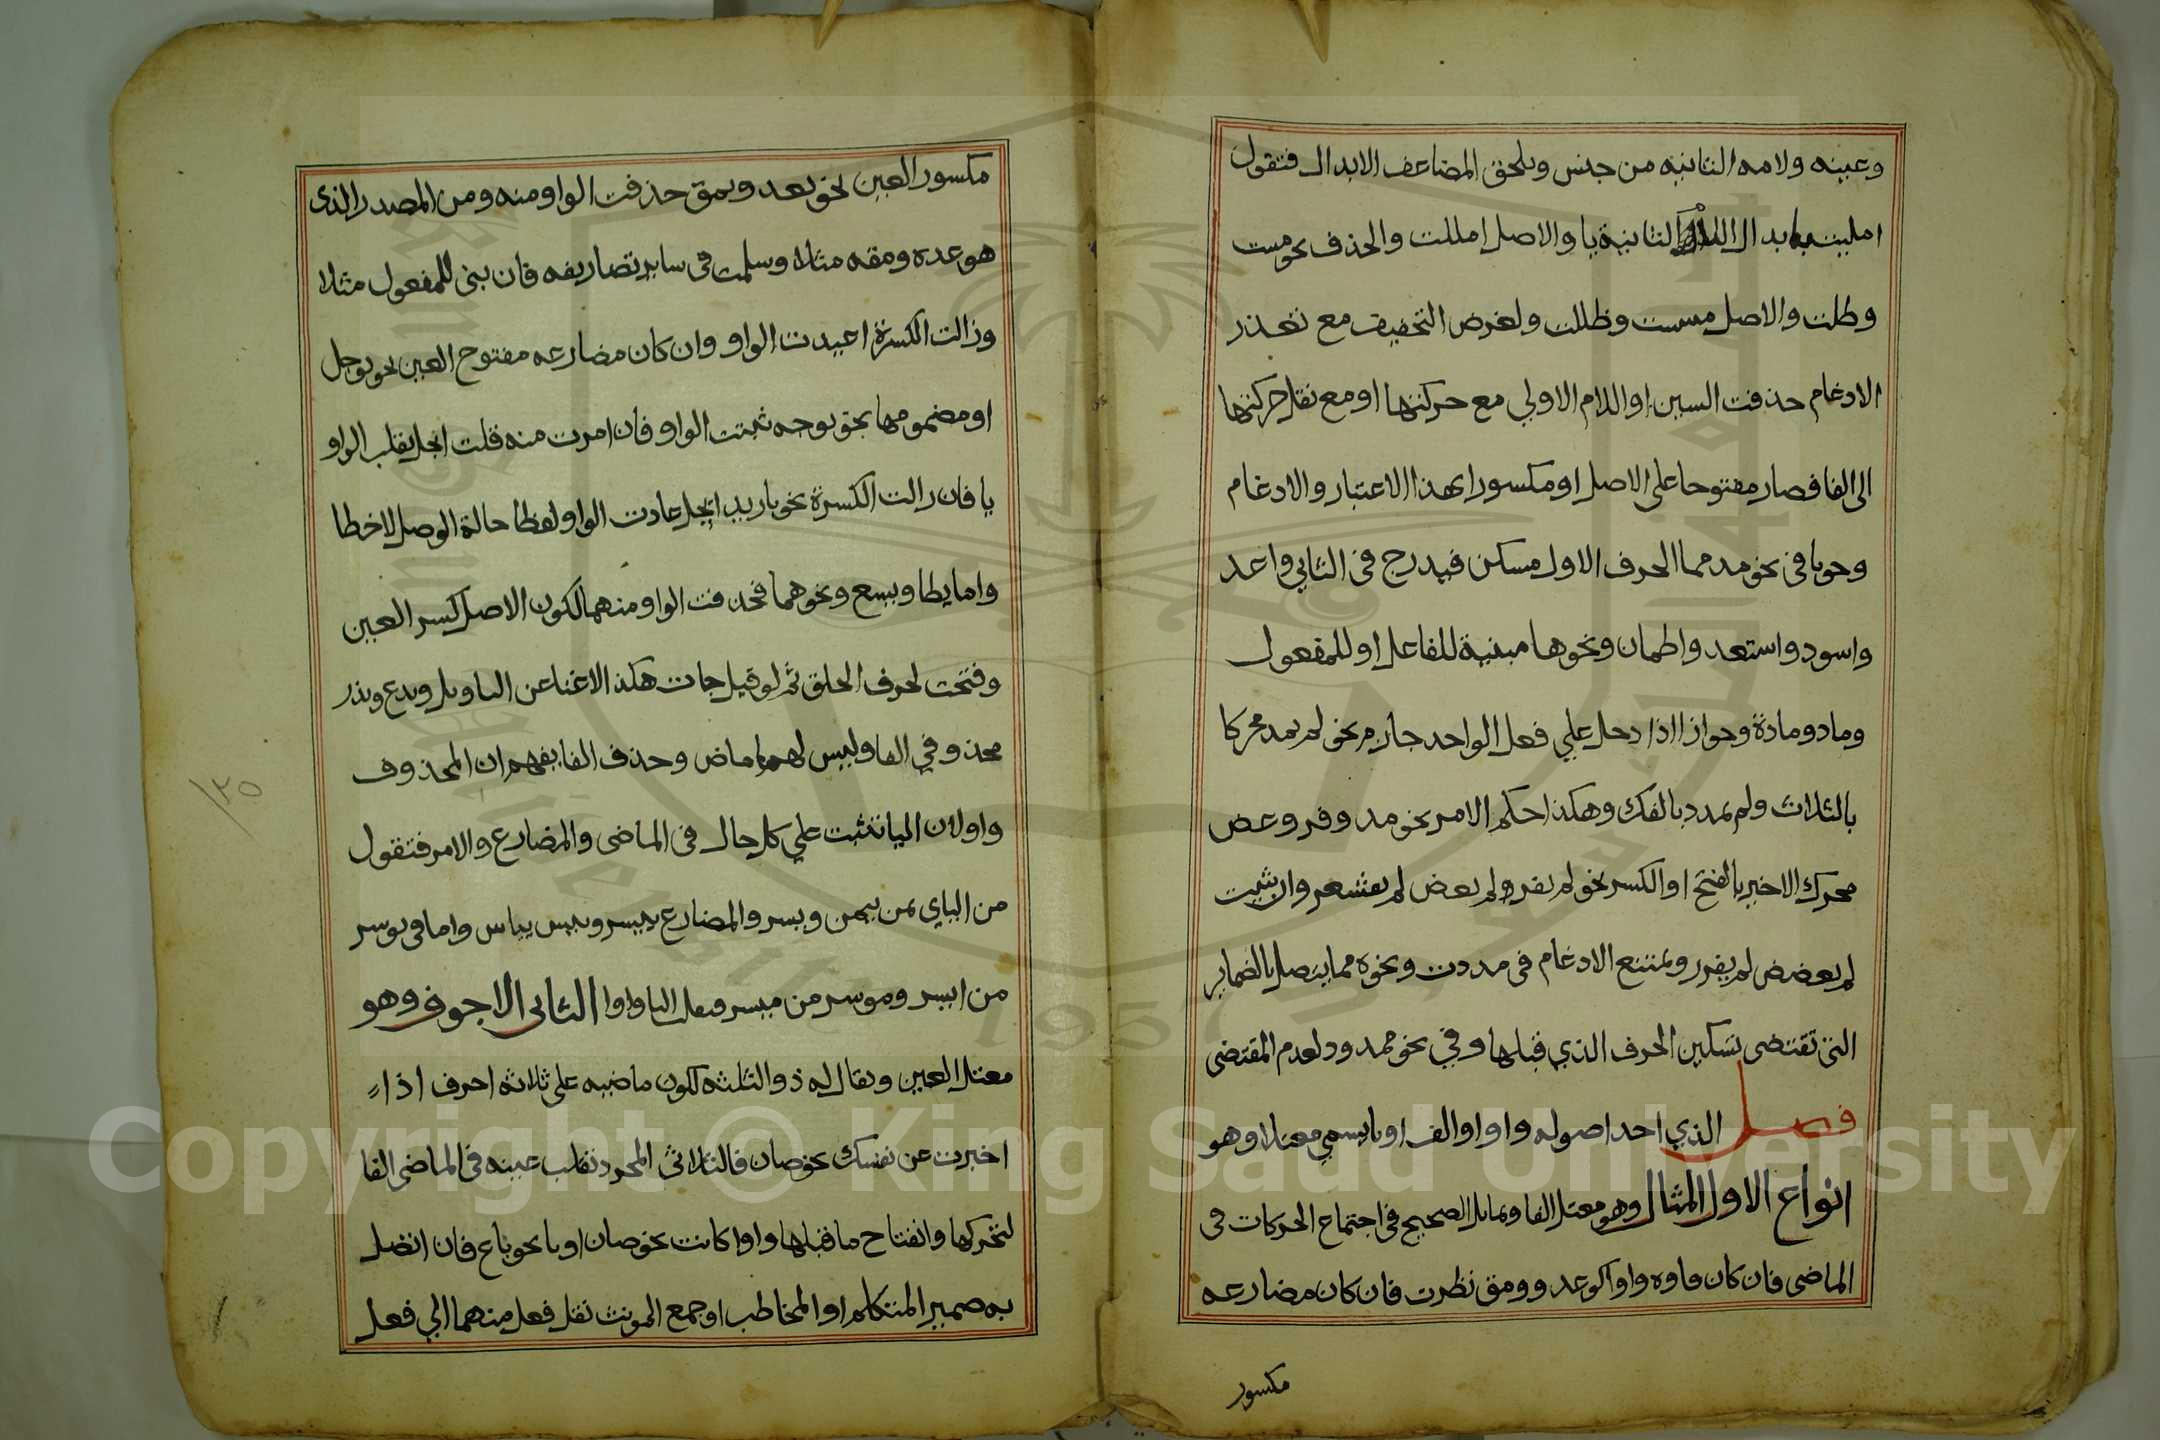 وعينه ولامه الثانيه من جنس ويلحق المضاعف الابدال فتقول
امليت بابدال اللام الثانية يا والاصل امللت والحذف نحو مست
وظلت والاصل مسست وظللت ولغرض التخفيف مع تعذر
الادغام حذفت السين او اللام الاولي مع حركتها او مع نقل حركتها
الى الفا فصار مفتوحا على الاصل او مكسورا بهذا الاعتبار والادغام
وجوبا في نحو مد مما الحرف الاول مسكن فيدرج في الثاني واعد
واسود واستعد واطمان ونحوها مبنية للفاعل او للمفعول
وماد ومادة وجوازا اذا دخل علي فعل الواحد جازم نحو لم يمد محركا
بالثلاث ولم يمدد بالفك وهكذا حكم الامر نحو مد وفر وعض
محرك الاخير بالفتح او الكسر نحو لم يفر ولم يعض لم يقشعر وان شيت
لم يعضض لم يفرر ويمتنع الادغام في مددت ونحوه مما يتصل بالضماير
التي تقتضي تسكين الحرف الذي قبلها وفي نحو ممدود لعدم المقتضى
فصل الذي احد اصوله واو او الف او يا يسمي معتلا وهو
انواع الاول المثال وهو معتل الفا ويماثل الصحيح في اجتماع الحركات في
الماضي فان كان فاوه واوا كوعد وومق نظرت فان كان مضارعه
مكسور
مكسور العين نحو يعد ويمق حذفت الواو منه ومن المصدر الذي
هو عده ومقه مثلا وسلمت في ساير تصاريفه فان بني للمفعول مثلا
وزالت الكسرة اعيدت الواو وان كان مضارعه مفتوح العين نحو يوجل
او مضمومها نحو يوجه ثبتت الواو فان امرت منه قلت ايجل بقلب الواو
يا فان زالت الكسرة نحو يا زيد ايجل عادت الواو لفظا حالة الوصل لا خطا
واما يطا ويسع ونحوهما فحذفت الواو منهما لكون الاصل كسر العين
وفتحت لحرف الحلق ثم لو قيل جات هكذا لاغنا عن التاويل ويدع ويذر
محذوفي الفا وليس لهما ماض وحذف الفا يفهم ان المحذوف
واو لان اليا تثبت علي كل حال في الماضي والمضارع والامر فتقول
من الياي يمن ييمن ويسر والمضارع ييسر ويبس يياس واما في يوسر
من ايسر وموسر من ميسر فبقلب اليا واوا الثاني الاجوف وهو
معتل العين ويقال له ذو الثلثه لكون ماضيه على ثلاثه احرف اذا
اخبرت عن نفسك نحو صان فالثلاثي المجرد تقلب عينه في الماضي الفا
لتحركها وانفتاح ما قبلها واوا كانت نحو صان او يا نحو باع فان اتصل
به ضمير المتكلم او المخاطب او جمع المونث نقل فعل منهما الي فعل
١٣٥
Copyright © King Saud University
1957